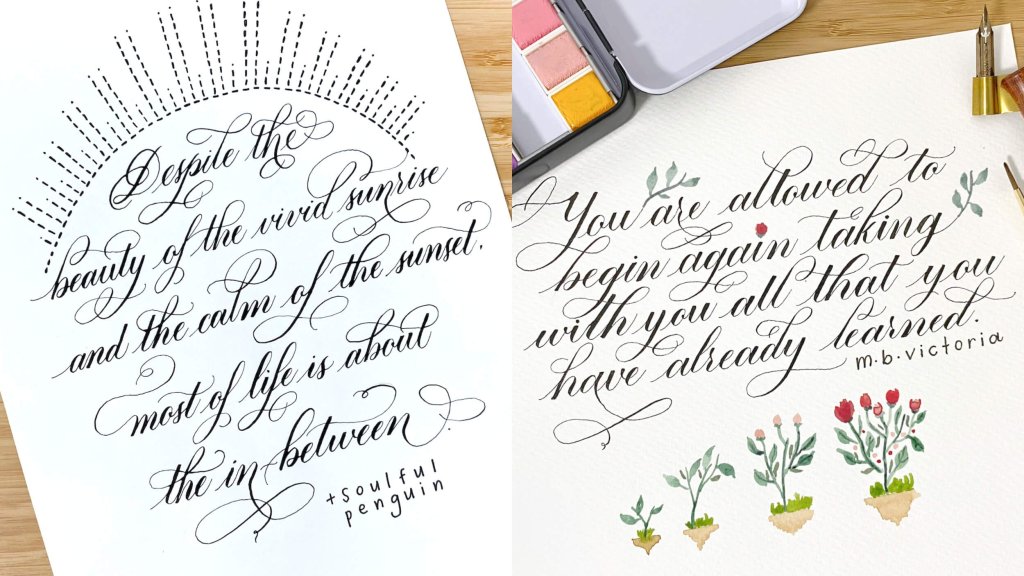 Despite the
beauty of the vivid sunrise
and the calm of the sunset,
most of life is about
the in-between.
+soulful
penguin
You are allowed to
begin again taking
with you all that you
have already learned.
m.b.victoria